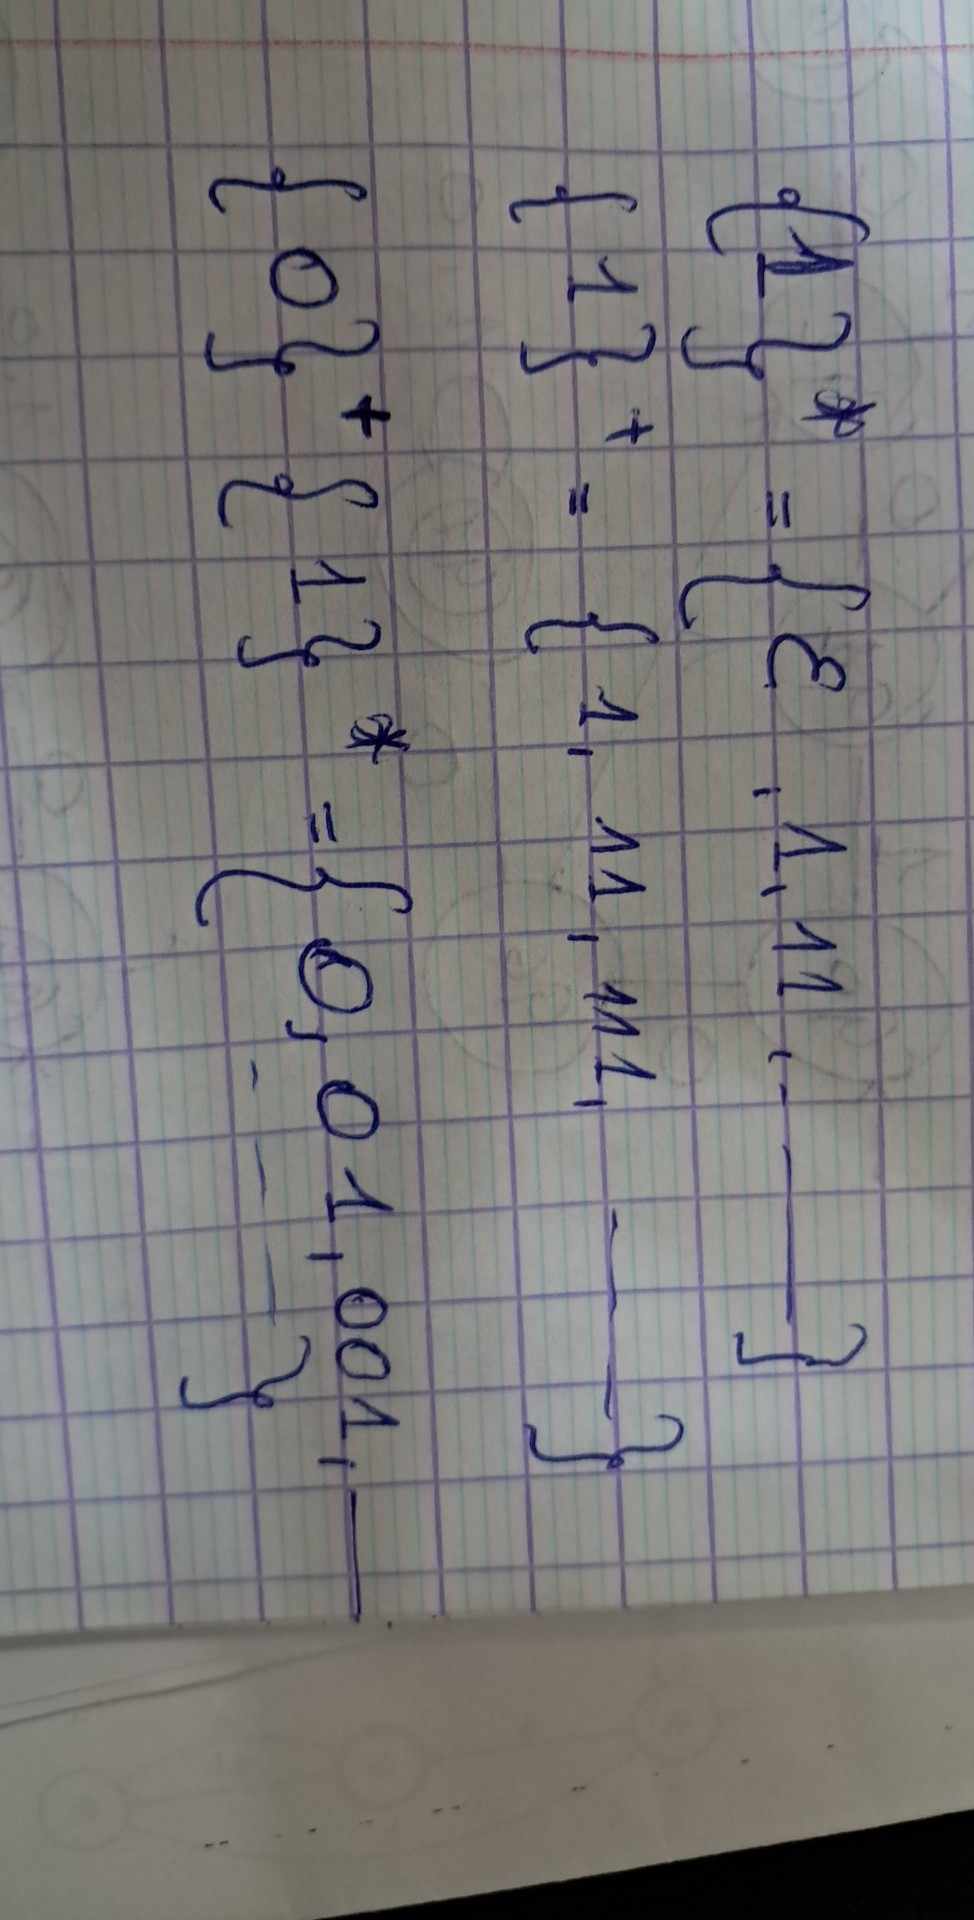 {1}* = {ε, 1, 11, - ——— }
{1}⁺ = {1, 11, 111, - — — }
{0}⁺ {1}* = {0, 01, 001, ——
- — — }